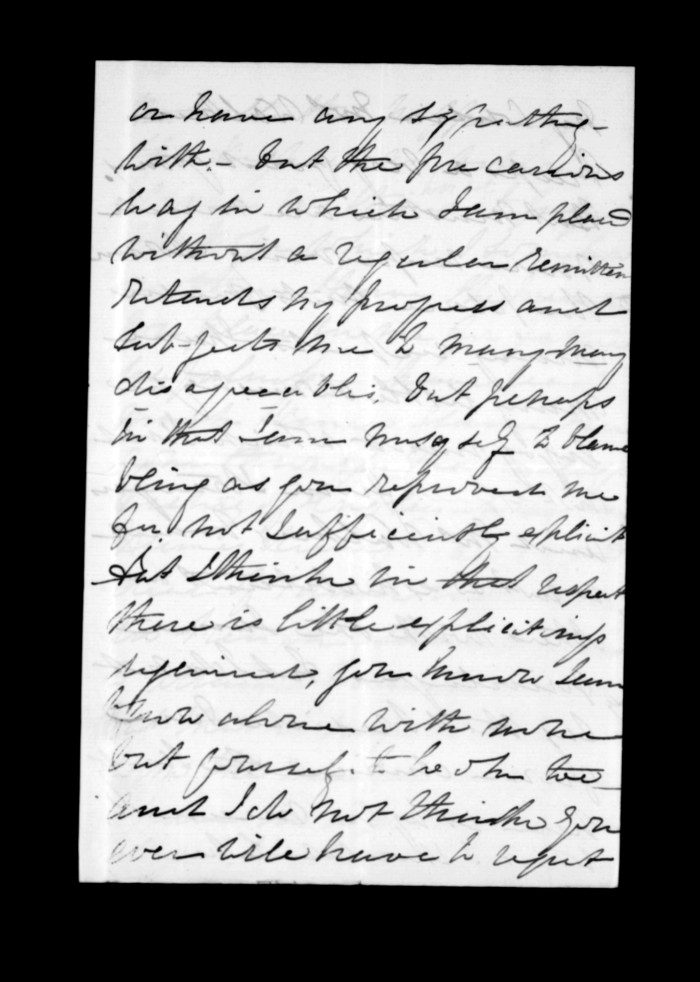 or have any sypathy -
with. - but the precarious
way in which I am placed
without a regular remitten
retards my progress and
subjects me to many many
disagreeables, but perhaps
in that I am mysself to blame
being as you reprovect me
for not sufficiently explicit
but I thinke in that respect
there is little explicitings
requiered, you know I am
now alone with none
but yourself to looke too
and I do not thinke you
ever wile have to regret